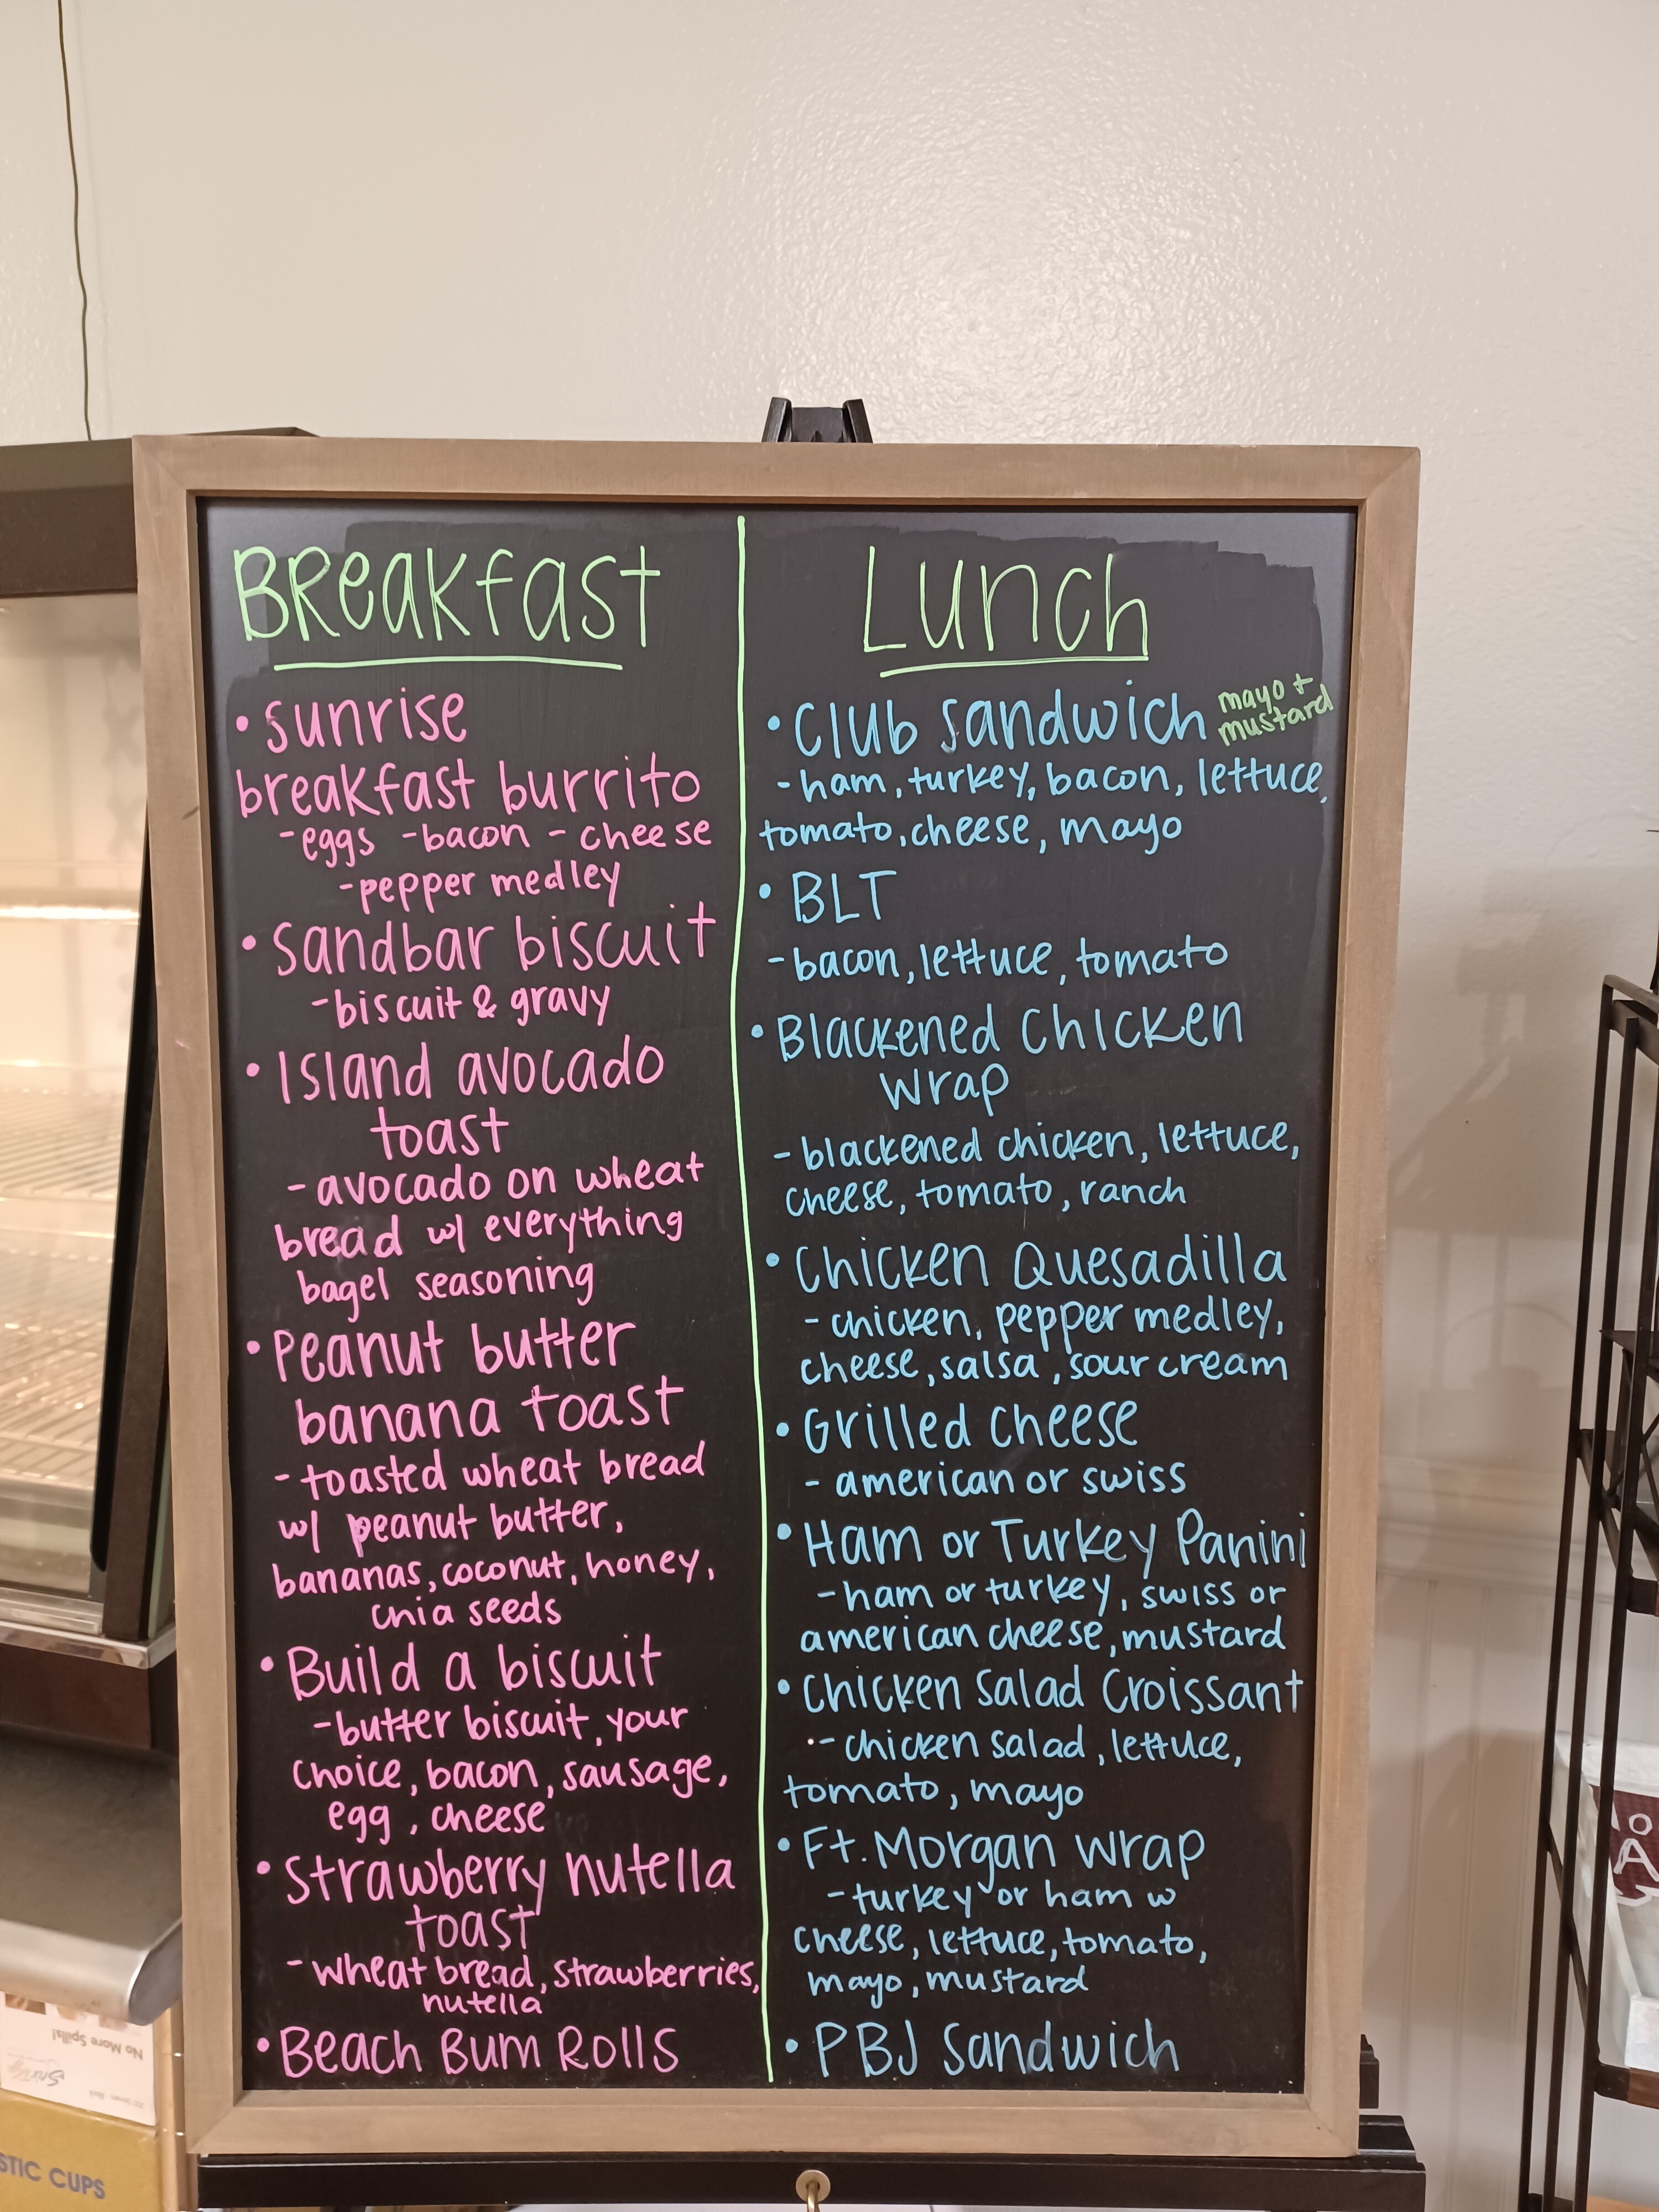 Breakfast
• sunrise
breakfast burrito
-eggs -bacon - cheese
-pepper medley
• Sandbar biscuit
-biscuit & gravy
• Island avocado
toast
- avocado on wheat
bread w/ everything
bagel seasoning
• Peanut butter
banana toast
- toasted wheat bread
w/ peanut butter,
bananas, coconut, honey,
chia seeds
• Build a biscuit
-butter biscuit, your
choice, bacon, sausage,
egg, cheese
• Strawberry nutella
toast
- wheat bread, strawberries,
nutella
• Beach Bum Rolls
Lunch
• Club Sandwich mayo +
mustard
-ham, turkey, bacon, lettuce,
tomato, cheese, mayo
• BLT
-bacon, lettuce, tomato
• Blackened Chicken
wrap
- blackened chicken, lettuce,
cheese, tomato, ranch
• Chicken Quesadilla
- chicken, pepper medley,
cheese, salsa, sour cream
• Grilled Cheese
- american or swiss
• Ham or Turkey Panini
-ham or turkey, swiss or
american cheese, mustard
• Chicken Salad Croissant
- chicken salad, lettuce,
tomato, mayo
• Ft. Morgan wrap
- turkey or ham w
cheese, lettuce, tomato,
mayo, mustard
• PBJ Sandwich
No More Spills!
STIC CUPS